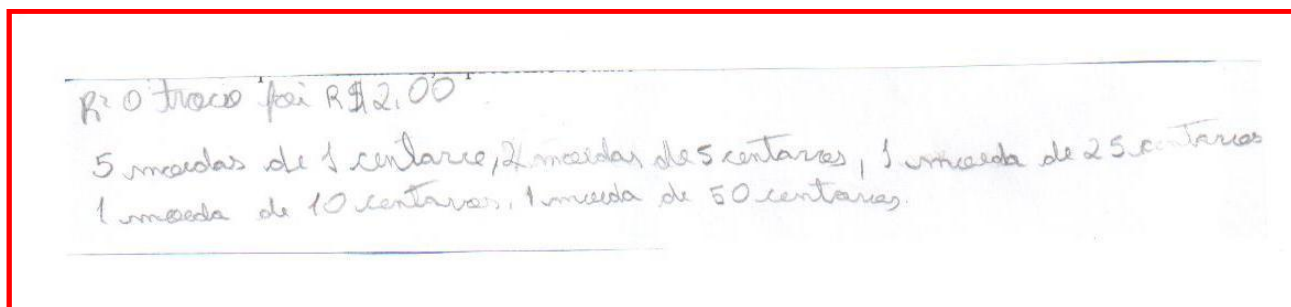 R: O troco foi R$2,00
5 moedas de 1 centavo, 2 moedas de 5 centavos, 1 moeda de 25 centavos
1 moeda de 10 centavos, 1 moeda de 50 centavos.